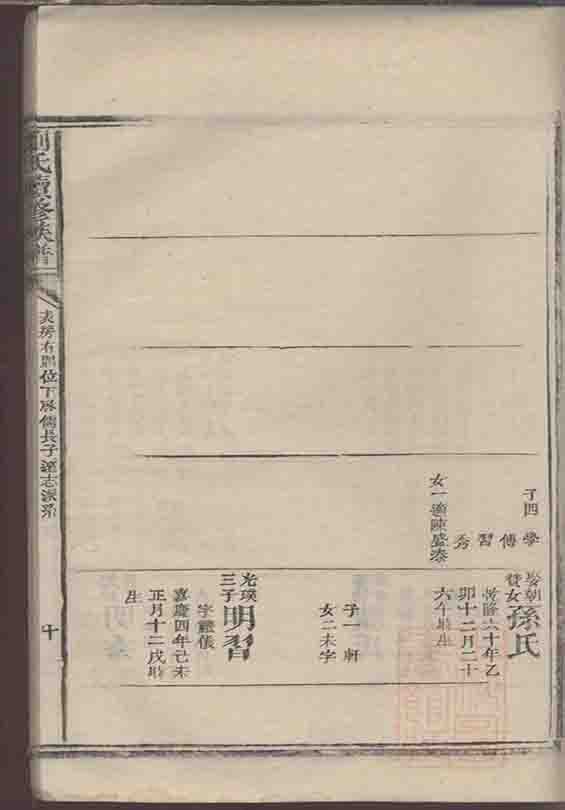 子四
學
傅
習
秀
女一適陳盛泰
娶朝
贊女孫氏
乾隆六十年乙
卯十二月二十
六午時生
子一軒
女二未字
光璞
三子明習
字禮儀
嘉慶四年己未
正月十二戌時
生
劉氏續修族譜
房有
位下
儒長子達志派系
十